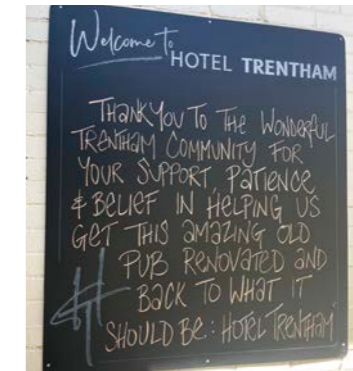 Welcome to
HOTEL TRENTHAM
THANK YOU TO THE WONDERFUL
TRENTHAM COMMUNITY FOR
YOUR SUPPORT, PATIENCE
& BELIEF IN HELPING US
GET THIS AMAZING OLD
PUB RENOVATED AND
BACK TO WHAT IT
SHOULD BE: HOTEL TRENTHAM